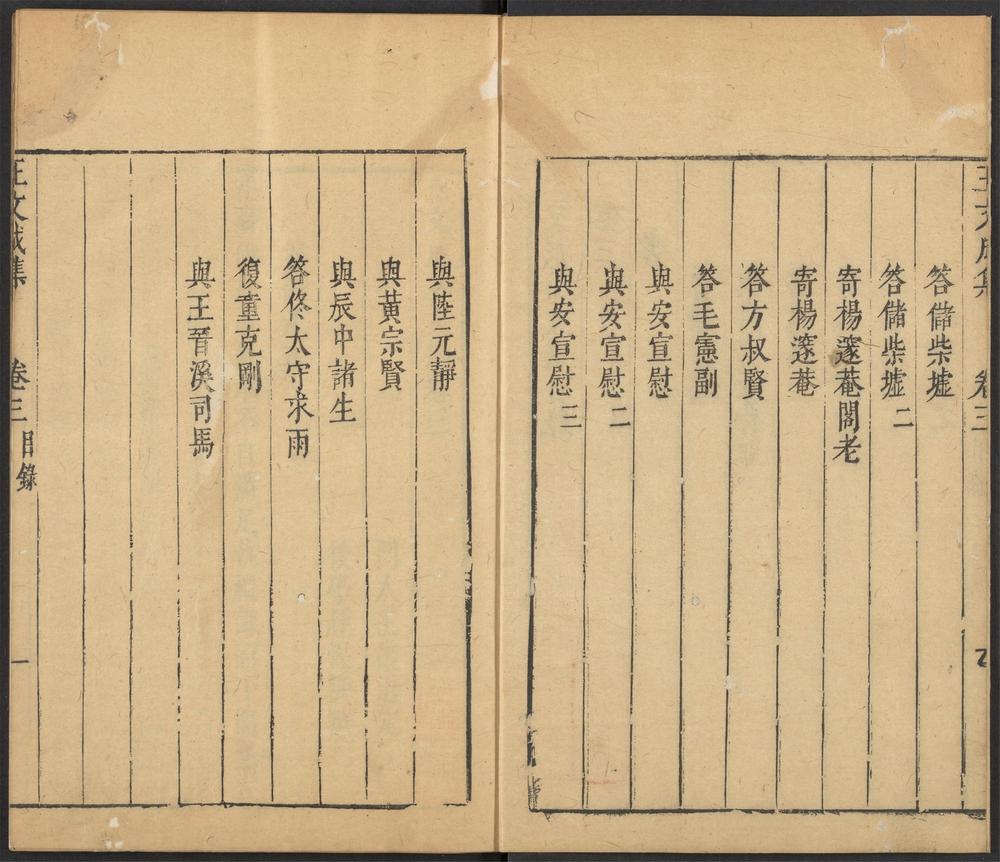 王文成集 卷三
答儲柴墟
答儲柴墟 二
寄楊邃菴閣老
寄楊邃菴
答方叔賢
答毛憲副
與安宣慰
與安宣慰 二
與安宣慰 三
與陸元靜
與黃宗賢
與辰中諸生
答佟太守求雨
復童克剛
與王晉溪司馬
王文成集 卷三 目錄 一